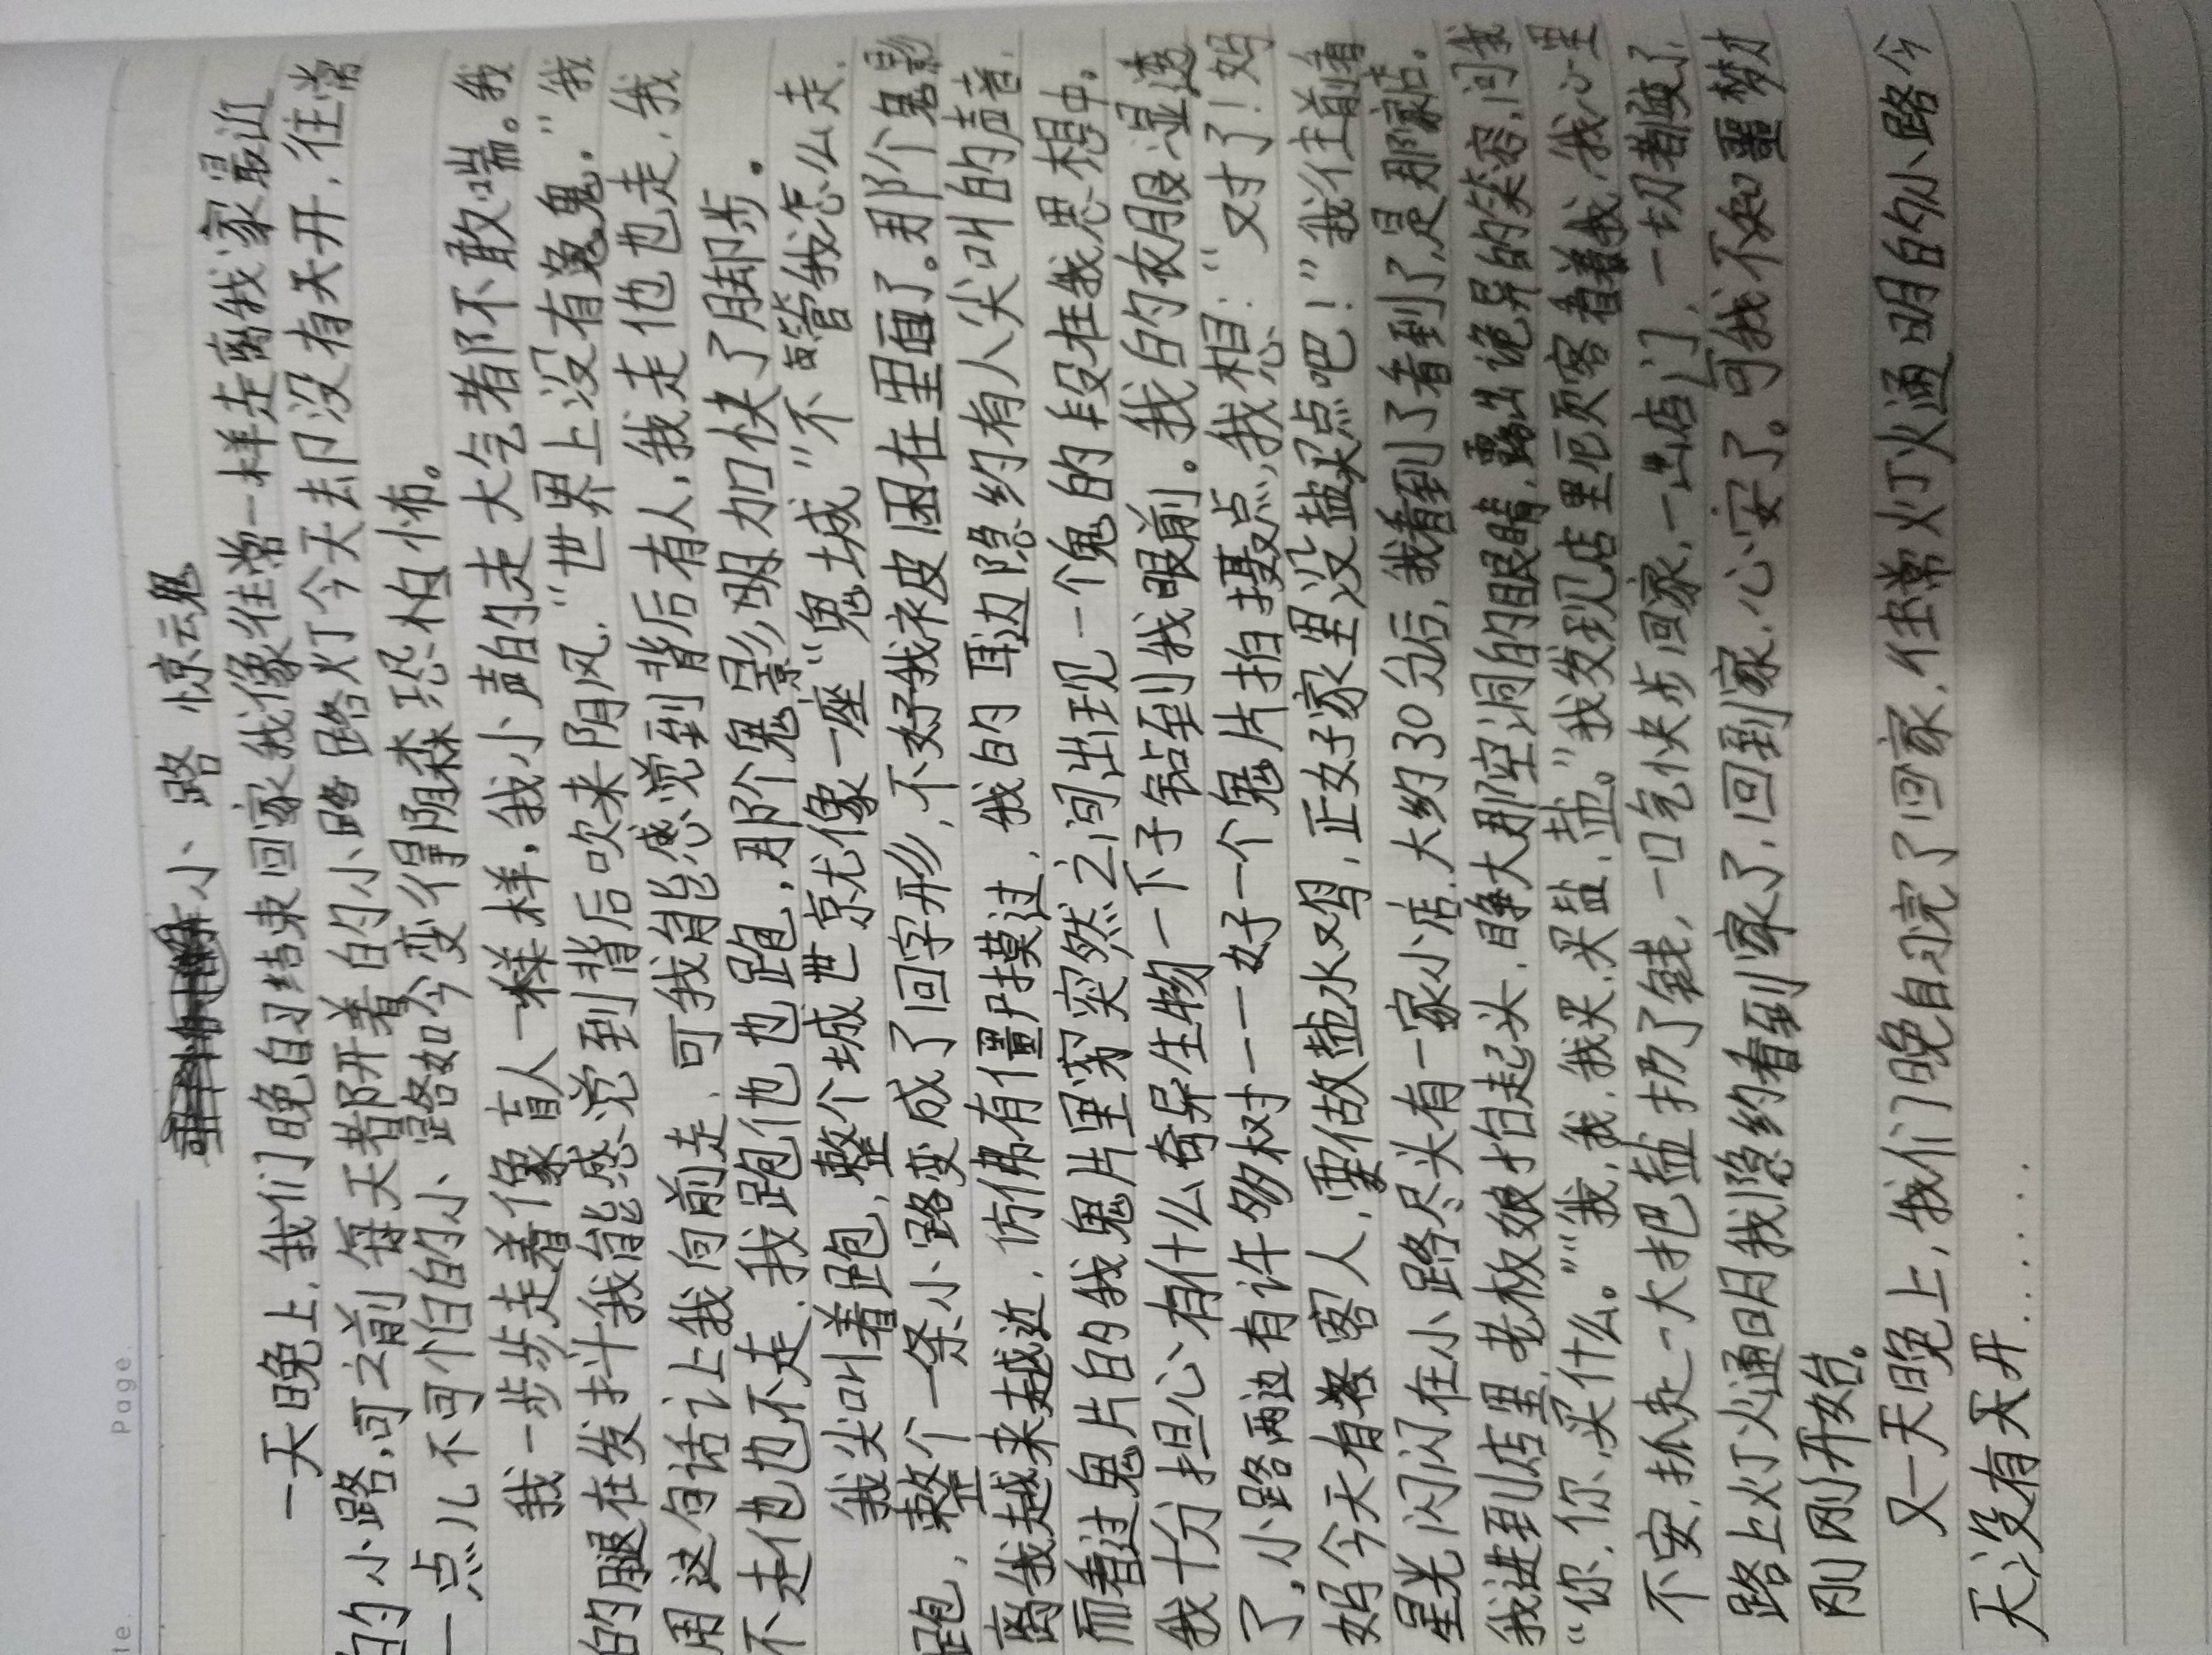 Page.
小路惊云鬼
一天晚上,我们晚自习结束回家我像往常一样走离我家最近
的小路,可之前每天都开着的小路路灯今天去卩没有天开,往常
一点儿不可个白的小路如今变得阴森恐怕怖。
我一步步走着像盲人一样,我小声的走大气都不敢喘。我
的腿在发抖我能感觉到背后吹来阴风,“世界上没有鬼。”我
用这句话让我向前走,可我能感觉到背后有人,我走他也走,我
不走他也不走,我跑他也跑,那个鬼影明加快了脚步。
我尖叫着跑,整个城世京尤像一座“鬼城”不管我怎么走,
跑,整个一条小路变成了回字形,不好我衤皮困在里面了。那个鬼影
离我越来越近,仿佛有僵尸摸过,我的耳边隐约有人尖叫的声音,
而看过鬼片的我鬼片里突然之间出现一个鬼的片段在我思想中。
我十分担心有什么奇异生物一下子钻到我眼前。我的衣服湿透
了,小路两边有许多树一一好一个鬼片拍摄点,我想:“对了!妈
妈今天有客人,要做盐水鸡,正好家里没盐买点吧!”我往前看
星光闪闪在小路尽头有一家小店,大约30分后,我看到了看到了,是那家店。
我进到店里,老板娘抬起头,睁大那空洞的眼睛,露出诡异的笑容,问我
“你,你,买什么。”“我,我,我买,买盐,盐。”我发现店里厄页客看着我,我心里
不安,抓走一大把盐扔了钱,一口气快步回家,一出店门,一切都变了,
路上灯火通明我隐约看到家了,回到家,心安了。可我不知噩梦才
刚刚开始。
又一天晚上,我们晚自习完了回家,往常灯火通明的小路今
天没有天开......